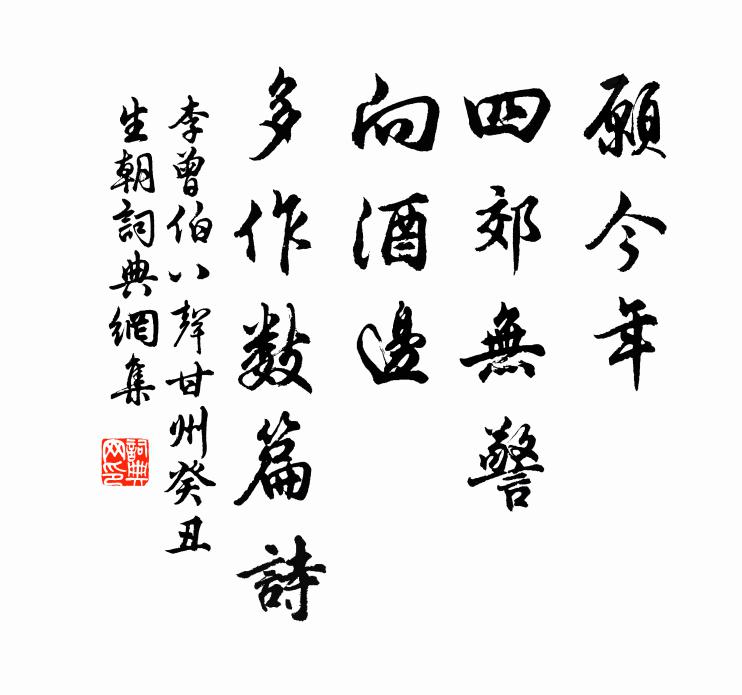 願今年
四郊無警
向酒邊
多作数篇詩
李曾伯八聲甘州癸丑
生朝詞典網集
詞典
网印